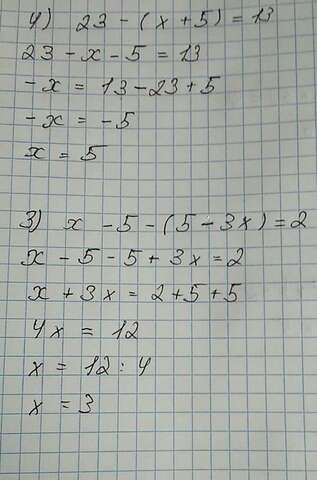 4) 23 - (x + 5) = 13
23 - x - 5 = 13
- x = 13 - 23 + 5
- x = - 5
x = 5
3) x - 5 - (5 - 3x) = 2
x - 5 - 5 + 3x = 2
x + 3x = 2 + 5 + 5
4x = 12
x = 12 : 4
x = 3